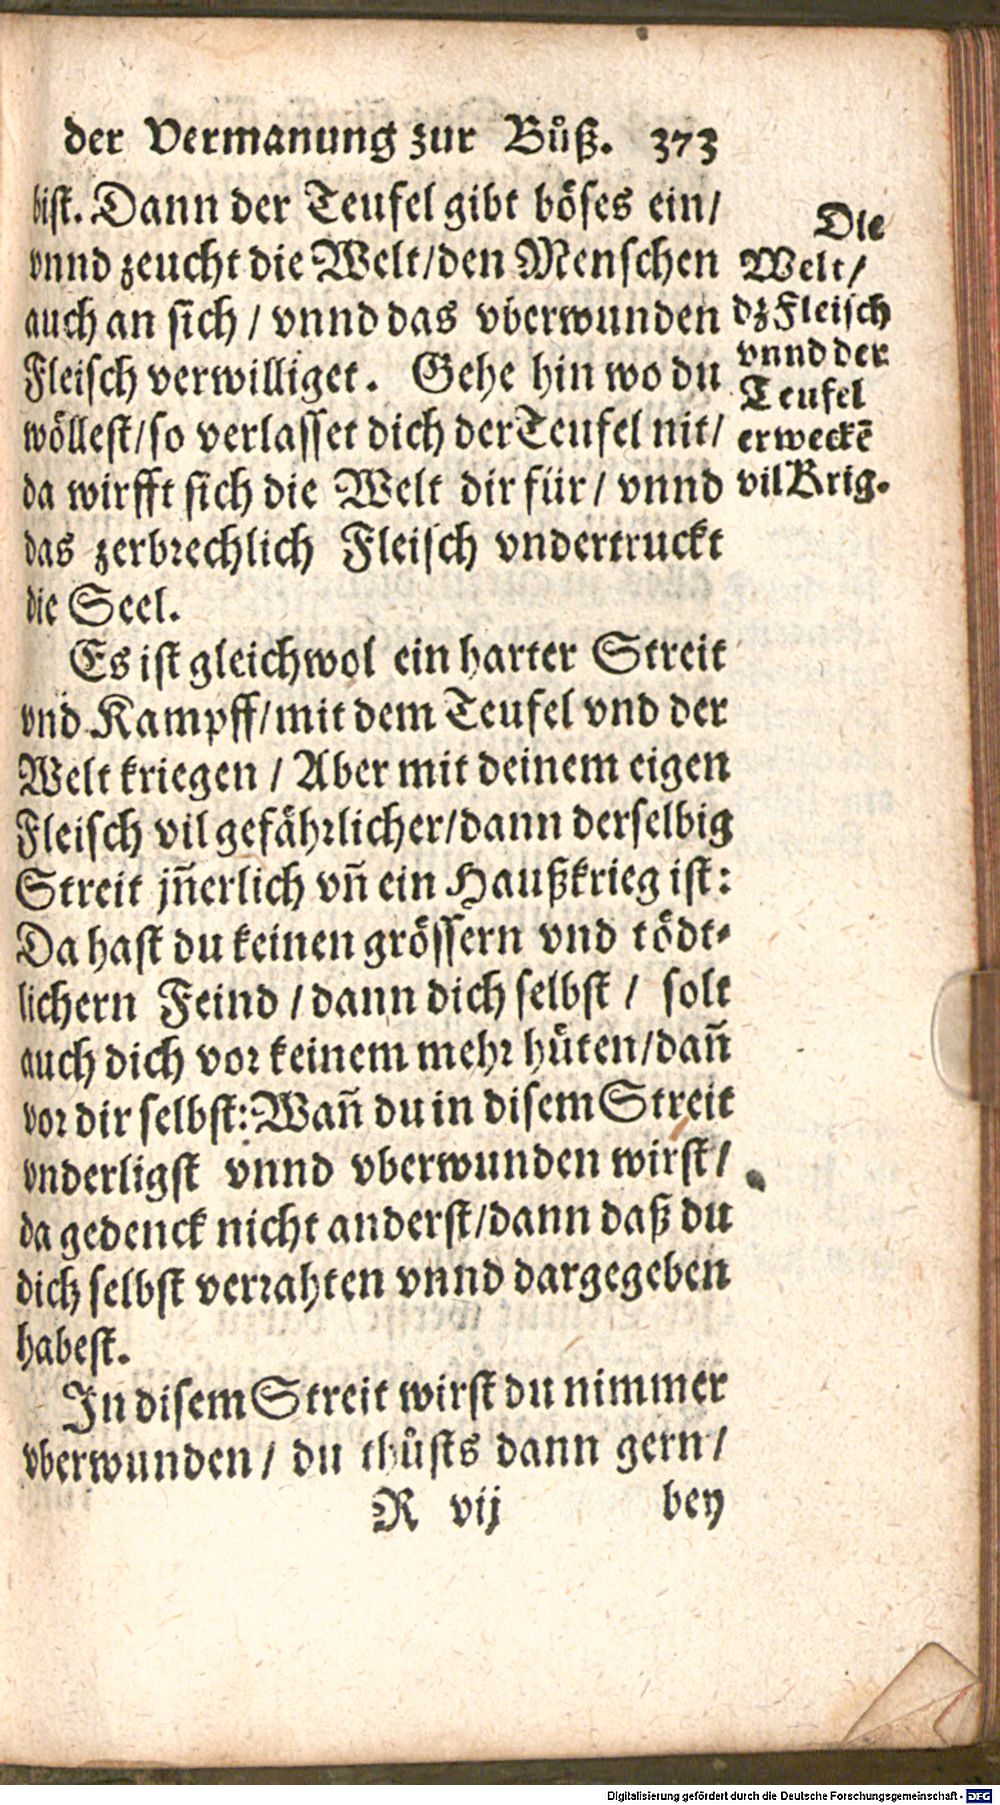 der Vermanung zur Bůß. 373
bist. Dann der Teufel gibt böses ein/
vnnd zeucht die Welt/den Menschen
auch an sich / vnnd das vberwunden
Fleisch verwilliget. Gehe hin wo du
wöllest/so verlasset dich der Teufel nit/
da wirfft sich die Welt dir für / vnnd
das zerbrechlich Fleisch vndertruckt
die Seel.
Die
Welt/
dz Fleisch
vnnd der
Teufel
erweckẽ
vil Krig.
Es ist gleichwol ein harter Streit
vnd Kampff/mit dem Teufel vnd der
Welt kriegen / Aber mit deinem eigen
Fleisch vil gefährlicher/dann derselbig
Streit jñerlich vñ ein Haußkrieg ist:
Da hast du keinen grössern vnd tödt-
lichern Feind / dann dich selbst / solt
auch dich vor keinem mehr hůten/dañ
vor dir selbst: Wañ du in disem Streit
vnderligst vnnd vberwunden wirst/
da gedenck nicht anderst/dann daß du
dich selbst verrahten vnnd dargegeben
habest.
In disem Streit wirst du nimmer
vberwunden / du thůsts dann gern/
R vij bey
Digitalisierung gefördert durch die Deutsche Forschungsgemeinschaft - DFG